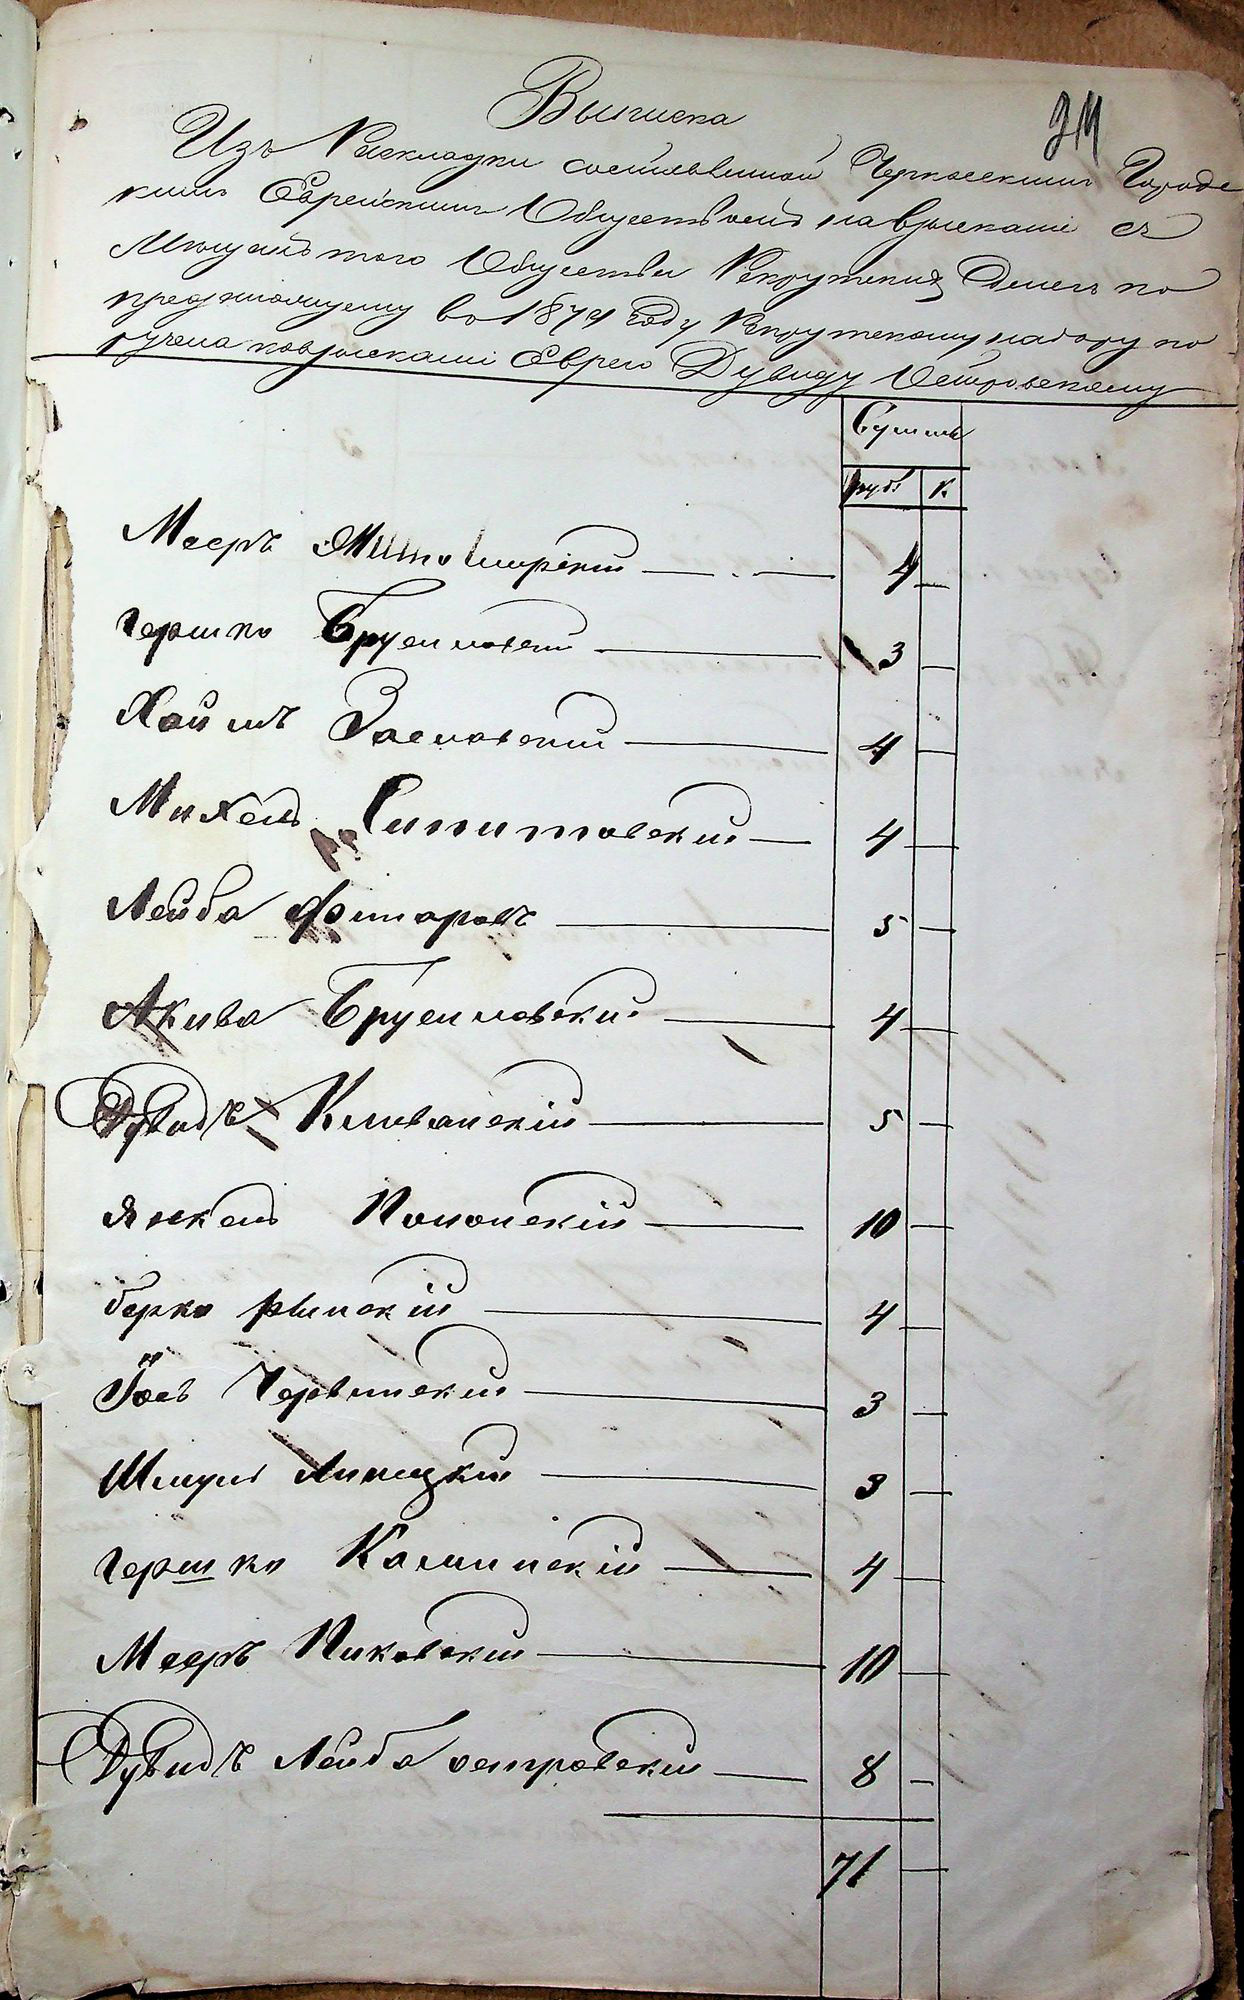 Выписка
Изъ Раскладки составленной Черкасскимъ Городс
кимъ Еврейскимъ Обществомъ на взысканіе съ
Мѣщанъ того Общества Рекрутскихъ Денегъ по
предстоящему въ 1874 году Рекрутскому набору по
ручена ко взысканіи Еврею Дувиду Островскому
Сумма
руб К
Мееръ Житомирскій 4
Гершко Бруслмовскі 3
Хаимъ Заславскій 4
Михель Липитовскій 4
Лейба 5
Акива Бруслмовскій 4
Дувидъ Кливанскій 5
Янкель Полонскій 10
Берко Рынскій 4
Іось Червинскій 3
Шмуль Липецкій 3
Гершко Каминскій 4
Мееръ Пиковскій 10
Дувидъ Лейба Островскій 8
71